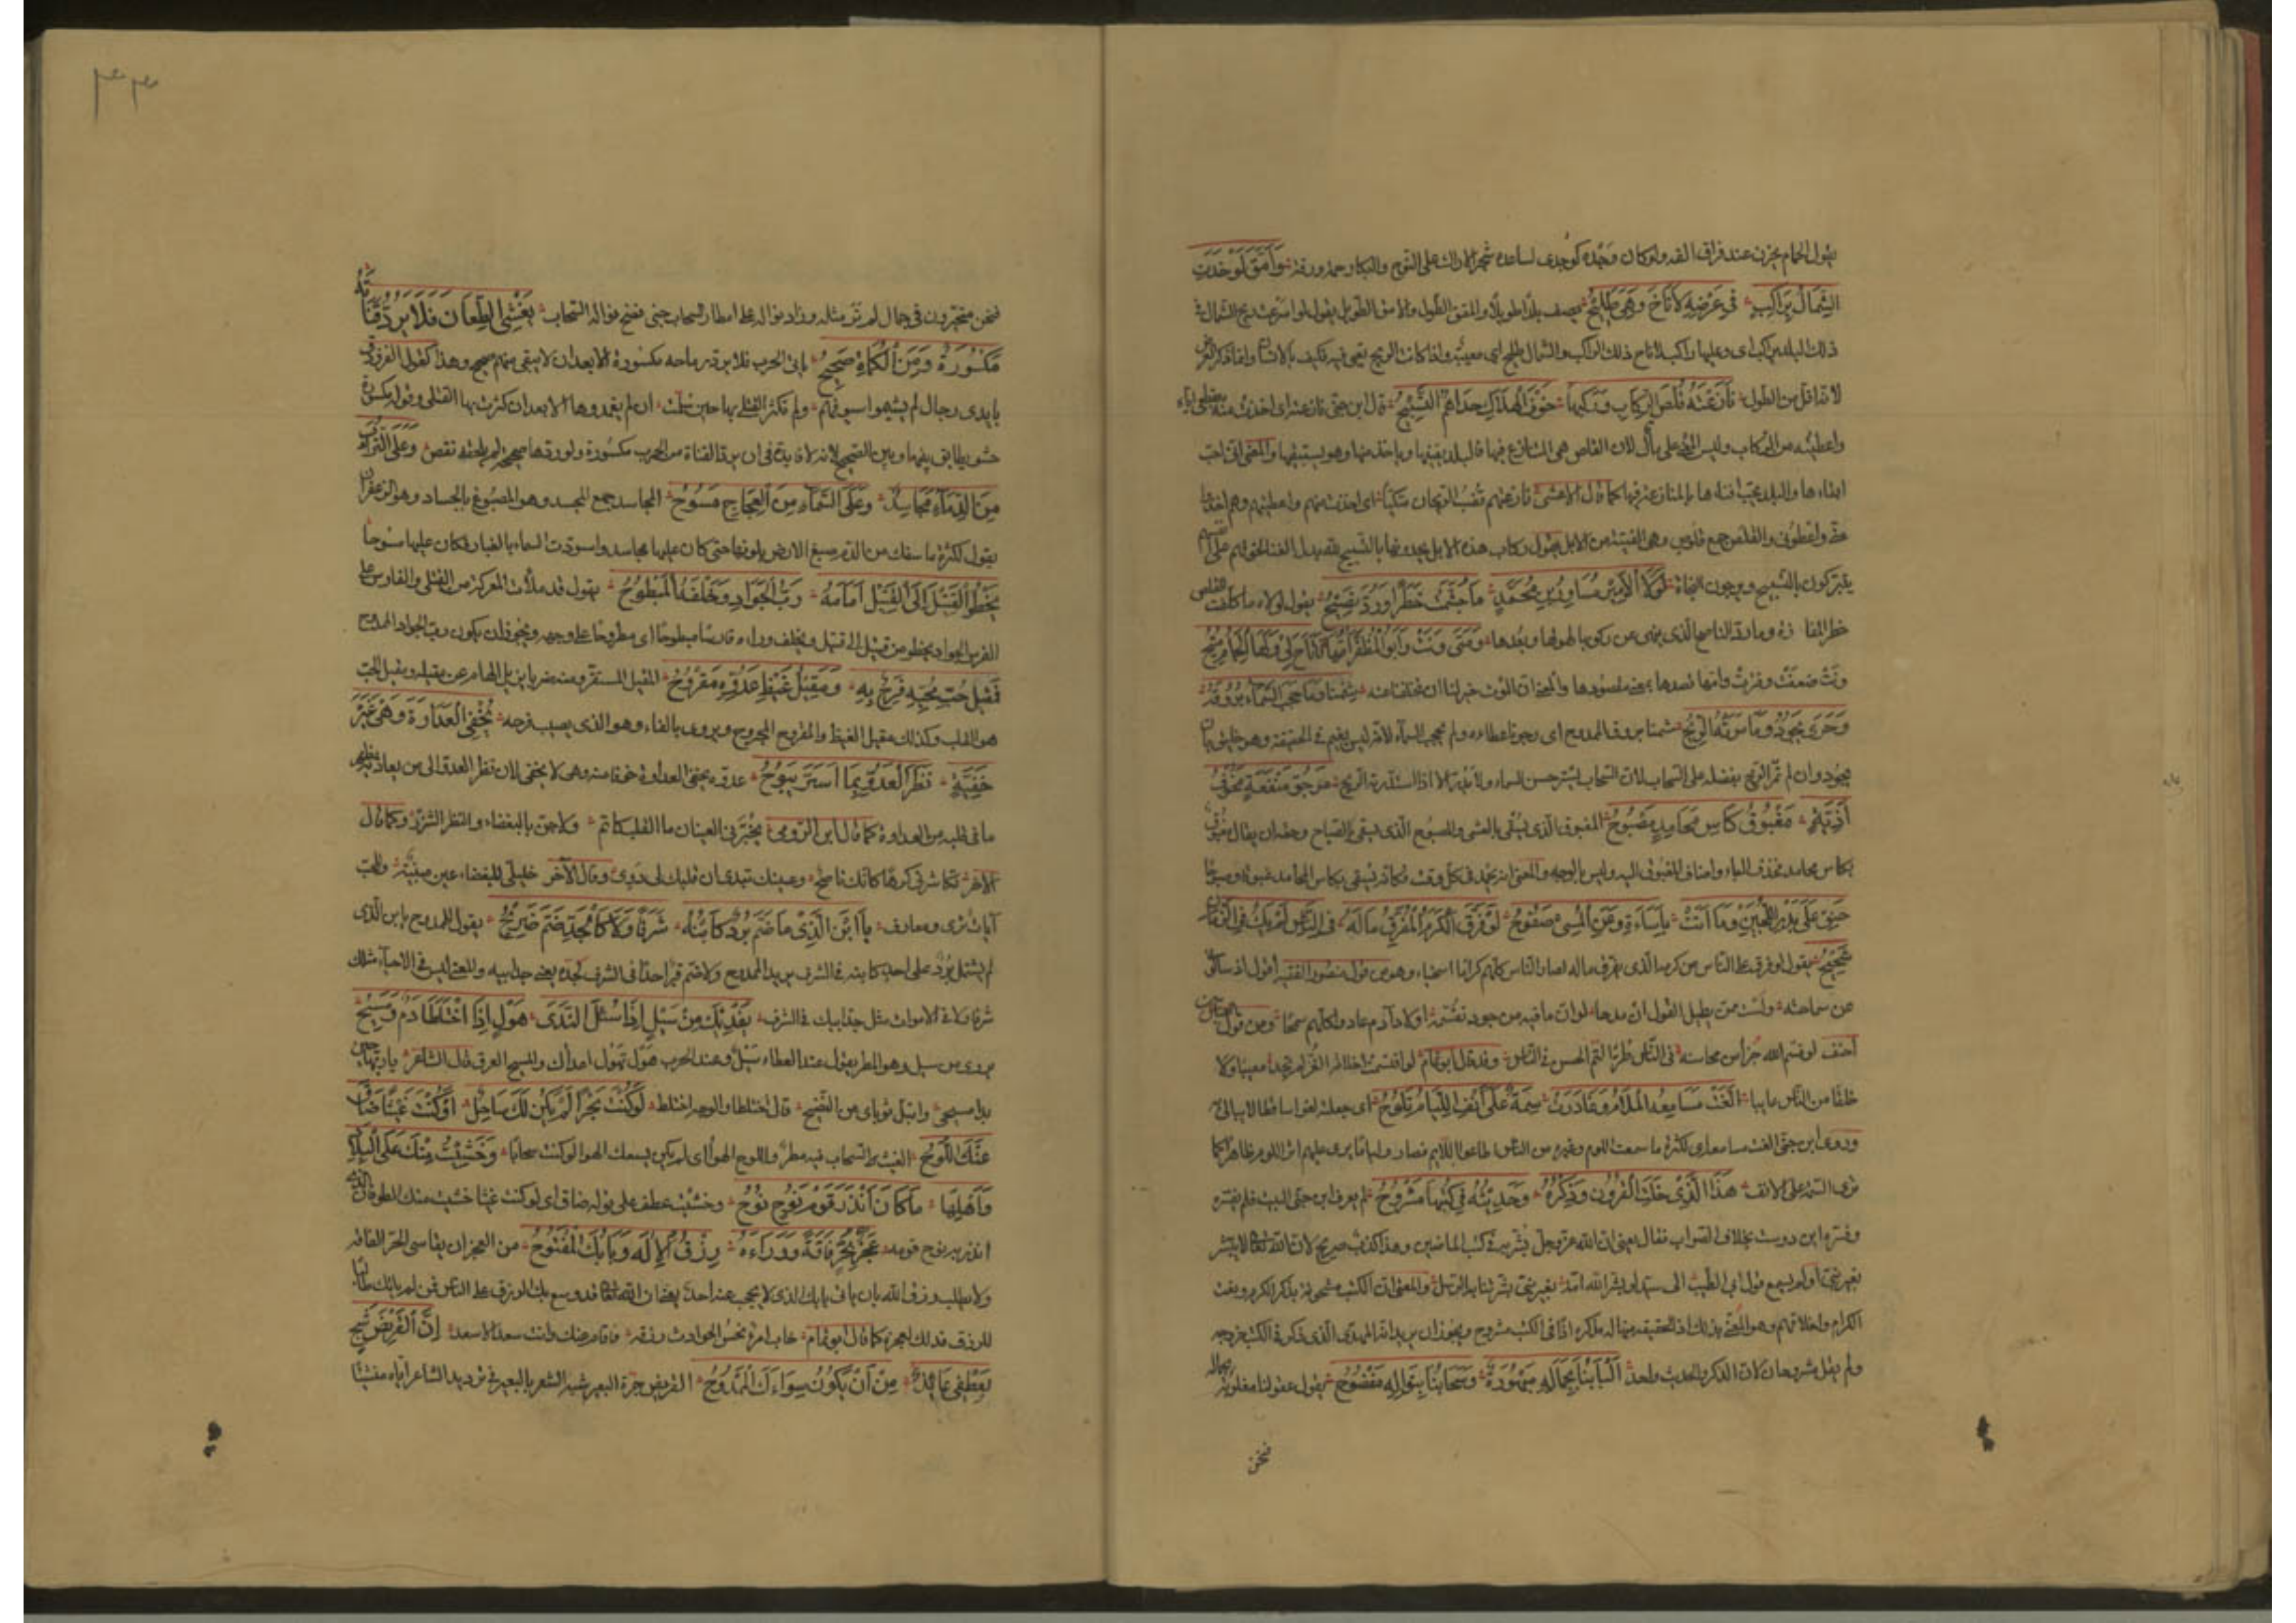 يقول الحمام يحزن عند فراق الفه ولو كان وجده كوجدى لساعده شجر الاراك على النوح والبكاء رحمة ورقة وَأَمَقَّ لَوْ خَدَتِ
الشَّمَالُ بِرَاكِبٍ فى عَرْضِهِ لَأَنَاخَ وَهِىَ طَلِيحُ يصف بلدا طويلا والمقق الطول والامق الطويل يقول لو اسرعت ريح الشمال فى
ذلك البلد براكب اى وعليها راكب لاناخ ذلك الراكب والشمال طليح اى معيية واذا كانت الريح تعيى فيه فكيف بالانسان وانما ذكر العرض
لانه اقل من الطول نَازَعْتُهُ قُلُصَ الرِّكَابِ وَرَكْبُهَا خَوْفَ الهَلَاكِ حُدَاهُمُ التَّسْبِيحُ قال ابن جنى نازعته اى اخذت منه بقطعى اياه
واعطيته من الركاب وليس المعنى على ما قال لان القلص هى المتنازع فيها فالبلد يفنيها وياخذ منها وهو يستبقيها والمعنى انى احب
ابقاءها والبلد يحب افناءها بالمنازعة فيها كما قال الاعشى نازعتهم قضب الريحان متكئا اى اخذت منهم واعطيتهم وهم اخذوا
منى واعطونى والقلص جمع قلوص وهى الفتية من الابل يقول ركاب هذه الابل يحدونها بالتسبيح بدل الغناء لخوفهم على انفسهم
يتبركون بالتسبيح ويرجون النجاة لَوْلَا الأَمِيرُ مُسَاوِرُ بْنُ مُحَمَّدٍ مَا جُشِّمَتْ خَطَرًا وَرُدَّ نَصِيحُ يقول لولاه ما كلفت القلص
خطر المفازة وما رد الناصح الذى ينهى عن ركوبها لهولها وبعدها وَمَتَى وَنَتْ وَأَبُو المُظَفَّرِ أَمُّهَا فَأَتَاحَ لِى وَلَهَا الحِمَامَ مُتِيحُ
ونت ضعفت وفترت وامها قصدها بمعنى مقصودها والمعنى ان الموت خير لنا ان تخلفنا عنه شِمْنَا وَمَا حَجَبَ السَّمَاءَ بُرُوقَهُ
وَحَرًى يَجُودُ وَمَا مَرَتْهُ الرِّيحُ شمنا بروق الممدوح اى رجونا عطاءه ولم تحجب السماء لانه ليس بغيم فى الحقيقة وهو خليق بان
يجود وان لم تمره الريح يفضله على السحاب لان السحاب يستر حسن السماء ولا يدر الا اذا استدرته الريح مَرْجُوُّ مَنْفَعَةٍ مَخُوفُ
أَذِيَّةٍ مَغْبُوقُ كَأْسِ مَحَامِدٍ مَصْبُوحُ المغبوق الذى يسقى بالعشى والمصبوح الذى يسقى بالصباح وحقه ان يقال مغبوق
بكاس محامد فحذف الباء واضاف المغبوق اليه وليس بالوجه والمعنى انه يحمد فى كل وقت فكانه يسقى بكاس المحامد غبوقا وصبوحا
حَنِقٌ عَلَى بِدَرِ اللُّجَيْنِ وَمَا أَتَتْ بِإِسَاءَةٍ وَعَنِ المُسِىءِ صَفُوحُ لَوْ فَرَّقَ الكَرَمَ المُفَرِّقَ مَالَهُ فى النَّاسِ لَمْ يَكُ فى الزَّمَانِ
شَحِيحُ يقول لو فرق على الناس من كرمه الذى يفرق ماله لصار الناس كلهم كراما اسخياء وهو من قول منصور الفقيه اقول اذ سالونى
عن سماحته ولست ممن يطيل القول ان مدحا لو ان ما فيه من جود تقسمه اولاد آدم عادوا كلهم سمحا ومن قول العباس بن
احنف لو قسم الله جزأ من محاسنه فى الناس طرا لتم الحسن فى الناس وقد قال ابو تمام لو اقتسمت اخلاقه الغر لم تجد معيبا ولا
خلقا من الناس عايبا أَلْغَتْ مَسَامِعُهُ المَلَامَ وَغَادَرَتْ سِمَةً عَلَى أَنْفِ اللِّئَامِ تَلُوحُ اى جعلته لغوا ساقطا لا يبالى به
وروى ابن جنى الفت مسامعه اى لكثرة ما سمعت اللوم وغيره من الناس اطاعوا اللايم فصاروا لئاما يرى عليهم اثر اللوم ظاهرا كما
ترى السمة على الانف هَذَا الَّذِى خَلَتِ القُرُونُ وَذِكْرُهُ وَحَدِيثُهُ فى كُتْبِهَا مَشْرُوحُ لم يعرف ابن جنى البيت فلم يفسره
وفسره ابن دوست بخلاف الصواب فقال يعنى ان الله عز وجل بشر به فى كتب الماضين وهذا كذب صريح لان الله تعالى لا يبشر
بغير نبى اولم يسمع قول ابى الطيب الى سيد لو بشر الله امة بغير نبى بشرتنا به الرسل والمعنى ان الكتب مشحونة بذكر الكرم ونعت
الكرام واخلاقهم وهو المعنى بذلك اذ الحقيقة منها له فذكره اذا فى الكتب مشروح ويجوز ان يريد انه المهدى الذى ذكر فى الكتب خروجه
ولم يقل مشروحان لان الذكر والحديث واحد أَلْبَابُنَا بِجَمَالِهِ مَبْهُورَةٌ وَسَحَابُنَا بِنَوَالِهِ مَفْضُوحُ يقول عقولنا مغلوبة بجماله
فنحن
٣٣
فنحن متحيرون فى جمال لم نر مثله وزاد نواله على امطار السحاب حتى فضح نواله السحاب يَغْشَى الطِّعَانَ فَلَا يَرُدُّ قَنَاتَهُ
مَكْسُورَةً وَمِنَ الكُمَاةِ صَحِيحُ ياتى الحرب فلا يرد رماحه مكسورة الا بعد ان لا يبقى منهم صحيح وهذا كقول الفرزدق
بايدى رجال لم يشيموا سيوفهم ولم تكثر القتلى بها حين سلت اى لم يغمدوها الا بعد ان كثرت بها القتلى وقوله مكسورة
حشو يطابق بينها وبين الصحيح لانه لا فايدة فى ان يرد القناة من الحرب مكسورة ولو ردها صحيحة لم يلحقه نقص وَعَلَى التُّرَابِ
مِنَ الدِّمَاءِ مَجَاسِدٌ وَعَلَى السَّمَاءِ مِنَ العَجَاجِ مُسُوحُ المجاسد جمع المجسد وهو المصبوغ بالجساد وهو الزعفران
يقول لكثرة ما سفك من الدم صبغ الارض بلونها حتى كان عليها مجاسد واسودت السماء بالغبار فكان عليها مسوحا
يَخْطُو القَتِيلَ إِلَى القَتِيلِ أَمَامَهُ رَبُّ الجَوَادِ وَخَلْفَهُ المَبْطُوحُ يقول قد ملأت المعركة من القتلى والفارس على
الفرس الجواد يخطو من قتيل الى قتيل ويخلف وراءه فارسا مبطوحا اى مطروحا على وجهه ويجوز ان يكون رب الجواد الممدوح
فَمَقِيلُ حُبِّ مُحِبِّهِ فَرِحٌ بِهِ وَمَقِيلُ غَيْظِ عَدُوِّهِ مَقْرُوحُ المقيل المستقر ومنه ضربا يزيل الهام عن مقيله ومقيل الحب
هو القلب وكذلك مقيل الغيظ والمقروح المجروح ويروى بالفاء وهو الذى يصيب فرحه يُخْفِى العَدَاوَةَ وَهْىَ غَيْرُ
خَفِيَّةٍ نَظَرُ العَدُوِّ بِمَا أَسَرَّ يَبُوحُ عدوه يخفى العداوة خوفا منه وهى لا تخفى لان نظر العدو الى من يعاديه يظهر
ما فى قلبه من العداوة كما قال ابن الرومى تخبرنى العينان ما القلب كاتم ولا جن بالبغضاء والنظر الشزر وكما قال
الآخر تكاشرنى كرها كانك ناصح وعينك تبدى ان قلبك لى دوى وقال الآخر خليلى للبغضاء عين مبينة وللحب
آيات ترى ومعارف يَا ابْنَ الَّذِى مَا ضَمَّ بُرْدٌ كَابْنِهِ شَرَفًا وَلَا كَالجَدِّ ضَمَّ ضَرِيحُ يقول للممدوح يا ابن الذى
لم يشتمل برد على احد كابنه فى الشرف يريد الممدوح ولا ضم قبر احدا فى الشرف كجده يعنى جد ابيه والمعنى ليس فى الاحياء مثلك
شرفا ولا فى الاموات مثل جد ابيك فى الشرف نَفْدِيكَ مِنْ سَيْلٍ إِذَا سُئِلَ النَّدَى هَوْلٍ إِذَا اخْتَلَطَا دَمٌ وَمَسِيحُ
يروى من سيل وهو المطر يقول عند العطاء سيل وعند الحرب هول تهول اعداءك والمسيح العرق قال الشاعر يا ريها حين
بدا مسيحى وابتل ثوباى من النضيح قال اختلطا والوجه اختلط لَوْ كُنْتَ بَحْرًا لَمْ يَكُنْ لَكَ سَاحِلٌ أَوْ كُنْتَ غَيْثًا ضَاقَ
عَنْكَ اللُّوحُ الغيث السحاب فيه مطر واللوح الهواء اى لم يكن يسعك الهواء لو كنت سحابا وَخَشِيتُ مِنْكَ عَلَى البِلَادِ
وَأَهْلِهَا مَا كَانَ أَنْذَرَ قَوْمَ نُوحٍ نُوحُ وخشيت عطف على قوله ضاق اى لو كنت غيثا خشيت منك الطوفان الذى
انذر به نوح قومه عَجْزٌ بِحُرٍّ فَاقَةٌ وَوَرَاءَهُ رِزْقُ الإِلَهِ وَبَابُكَ المَفْتُوحُ من العجز ان يقاسى الحر الفاقة
ولا يطلب رزق الله بان ياتى بابك الذى لا يحجب عنه احد يعنى ان الله تعالى قد وسع بك الرزق على الناس فمن لم ياتك طالبا
للرزق فذلك لعجزه كما قال ابو تمام خاب امرؤ نحس الحوادث رزقه فاقام عنك وانت سعد الاسعد إِنَّ القَرِيضَ شَجٍ
بِعِطْفِى عَائِذٌ مِنْ أَنْ يَكُونَ سِوَاءَكَ المَمْدُوحُ القريض جرة البعير شبه الشعر بالبعير فى ترديد الشاعر اياه منشئا